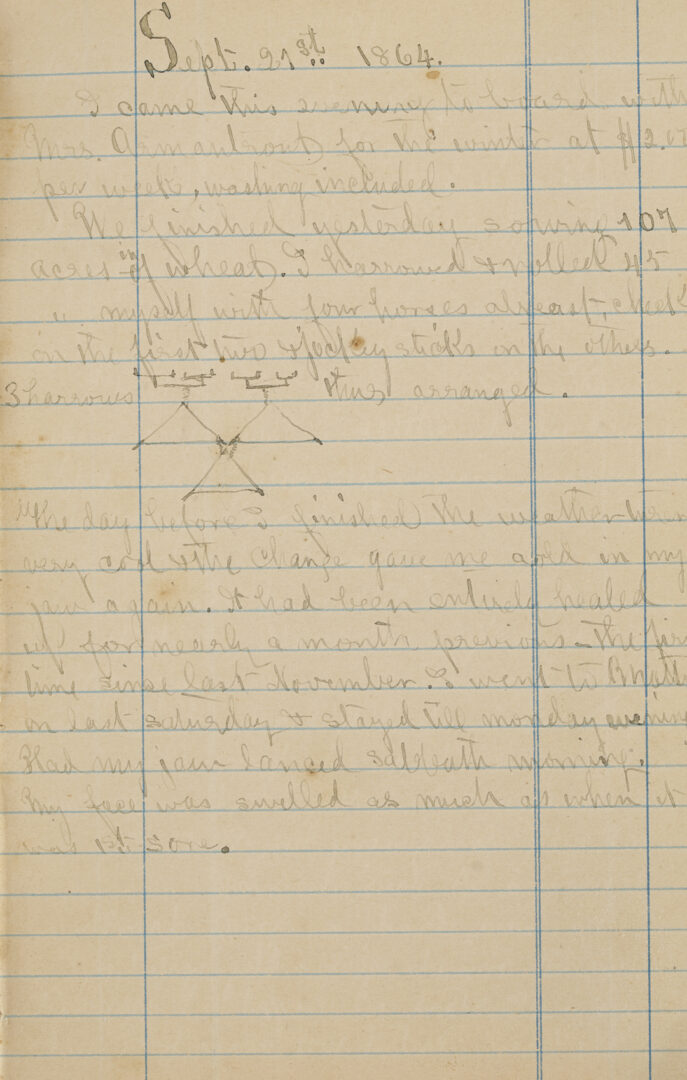 Sept. 21st. 1864.
I came this evening to board with
Mrs. Armantrout for the winter at $2.00
per week, washing included.
We finished yesterday sowing 107
acres in wheat. I harrowed & rolled 45
" myself with four horses abreast, check
on the first two & jockey sticks on the others.
3 harrows thus arranged.
The day before I finished the weather turned
very cool & the change gave me cold in my
jaw again. It had been entirely healed
up for nearly a month previous – the first
time since last November. I went to
on last saturday & stayed till monday evening
Had my jaw lanced sabbath morning.
My face was swelled as much as when it
was 1st sore.